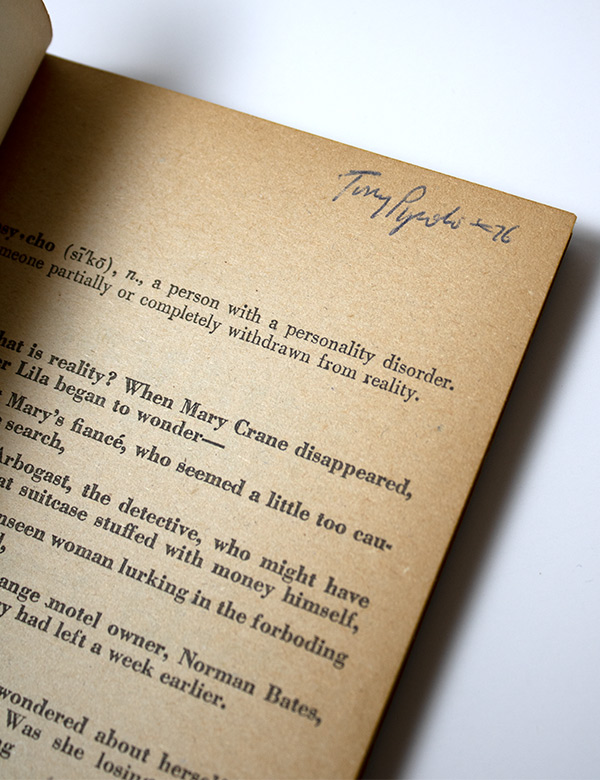 76
sy•cho (sī′kō), n., a person with a personality disorder.
meone partially or completely withdrawn from reality.
hat is reality? When Mary Crane disappeared,
er Lila began to wonder—
Mary's fiancé, who seemed a little too cau-
search,
Arbogast, the detective, who might have
at suitcase stuffed with money himself,
nseen woman lurking in the forboding
ange motel owner, Norman Bates,
y had left a week earlier.
wondered about herse
Was she losing
ng